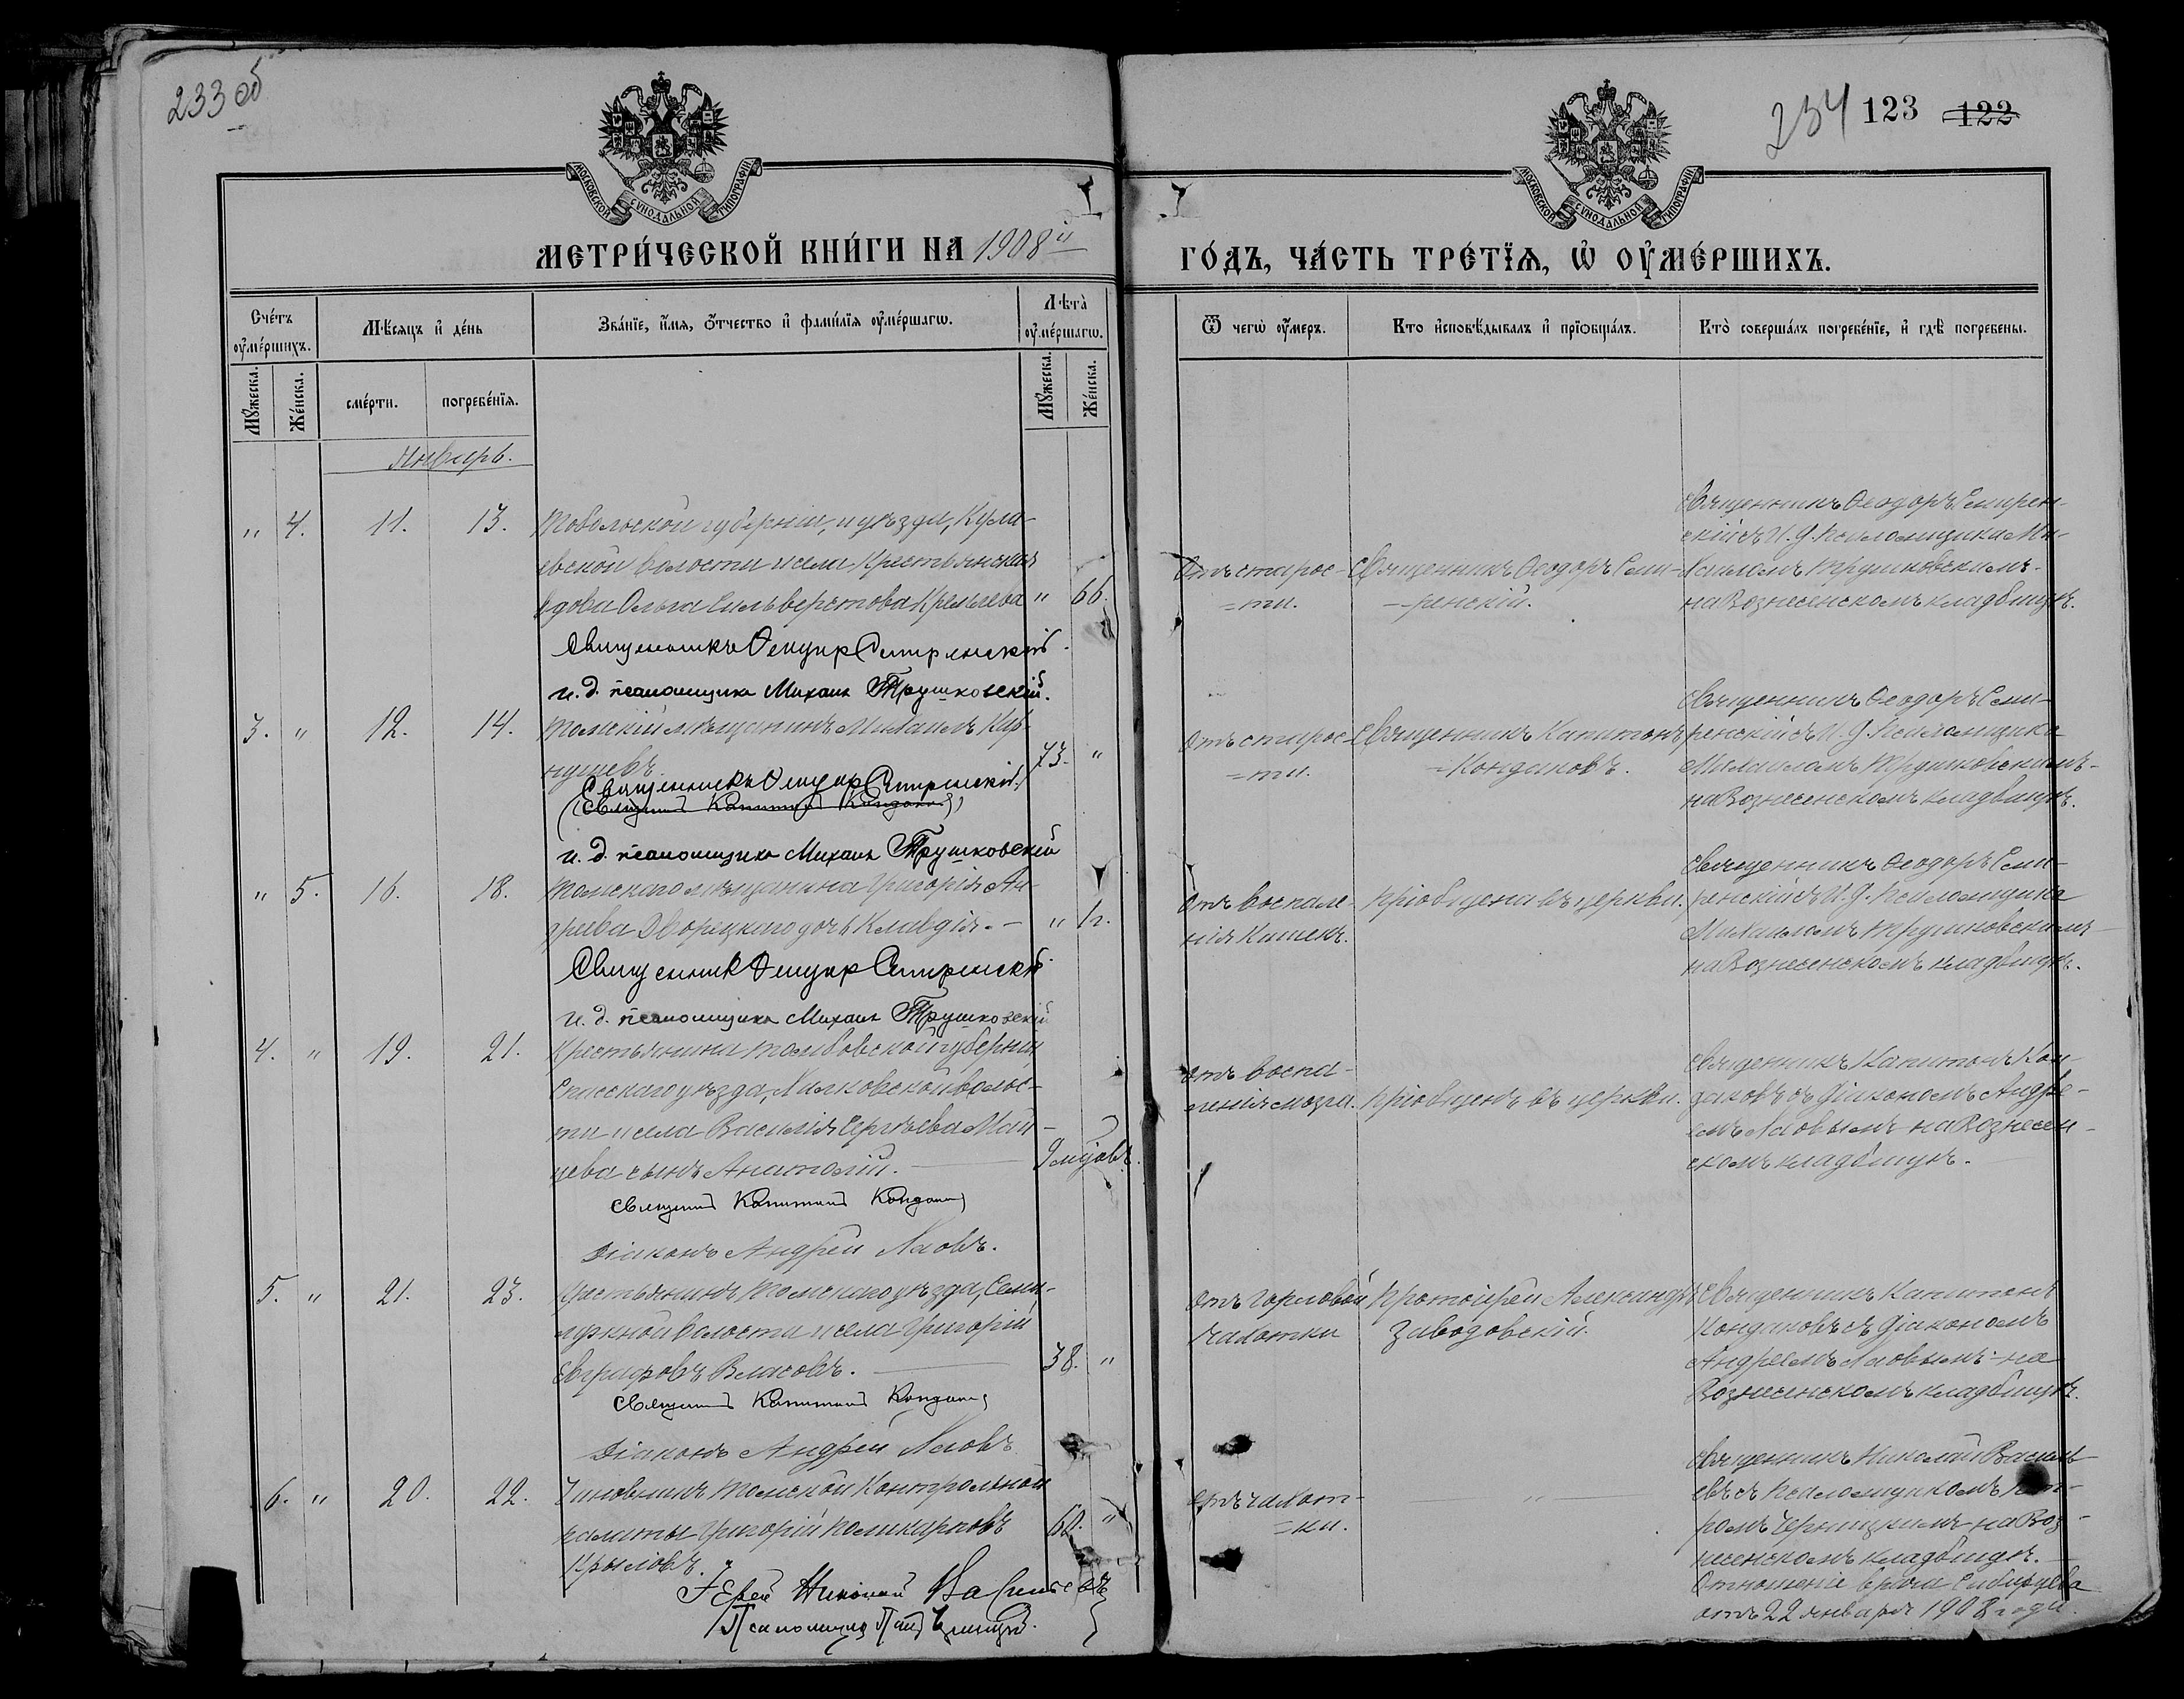 233 об
234 123 122
МОСКОВСКОЙ СѴНОДАЛЬНОЙ ТИПОГРАФІИ
МОСКОВСКОЙ СѴНОДАЛЬНОЙ ТИПОГРАФІИ
МЕТРИ́ЧЕСКОЙ КНИ́ГИ НА 1908й
ГО́ДЪ, ЧА́СТЬ ТРЕ́ТІѦ, Ѡ ОУ҆МЕ́РШИХЪ.
Сче́тъ оу҆ме́ршихъ.
Мѣ́сяцъ и҆ де́нь
Зва́нїе, и҆́мя, ѻ҆́тчество и҆ фами́лїя оу҆ме́ршагѡ.
Лѣ́та оу҆ме́ршагѡ.
Ѿ чегѡ̀ оу҆́меръ.
Кто̀ и҆сповѣ́дывалъ и҆ прїѡбща́лъ.
Кто̀ соверша́лъ погребе́нїе, и҆ гдѣ̀ погребены.
Мꙋ́жеска.
Же́нска.
сме́рти.
погребе́нїя.
Мꙋ́жеска.
Же́нска.
Январь.
" 4. 11. 13.
Тобольской губерніи, и уѣзда, Кула-
евской волости и села Крестьянская
вдова Ольга Сильверстова " 66.
Священникъ Ѳеодоръ Смиренскій.
и. д. псаломщика Михаилъ Трушковскій.
Отъ старос-
=ти.
Священникъ Ѳеодоръ Сми-
-ренскій.
Священникъ Ѳеодоръ Смирен-
скій съ И. д. Псаломщика Ми-
хаиломъ Трушковскимъ-
на Вознесенскомъ кладбищѣ.
3. " 12. 14.
Томскій мѣщанинъ Михаилъ
73. "
Священникъ Ѳеодоръ Смиренскій
(Священникъ Капитонъ Кондаковъ)
и. д. псаломщика Михаилъ Трушковскій
Отъ старос-
=ти.
Священникъ Капитонъ
=Кондаковъ.
Священникъ Ѳеодоръ Сми-
ренскій съ И. д. Псаломщика
Михаиломъ Трушковскимъ-
на Вознесенскомъ кладбищѣ.
" 5. 16. 18.
Томскаго мѣщанина Григорія Ан-
дреева Дворецкаго дочь Клавдія. - "
Священникъ Ѳеодоръ Смиренскій
и. д. псаломщика Михаилъ Трушковскій
Отъ воспале-
нія Кишекъ.
Пріобщена въ церкви.
Священникъ Ѳеодоръ Сми-
ренскій съ И. д. Псаломщика
Михаиломъ Трушковскимъ-
на Вознесенскомъ кладбищѣ.
4. " 19. 21.
Крестьянина Тамбовской губерніи
Спасскаго уѣзда, волос-
ти и села Василія Сергѣева
сынъ Анатолій. 9 мѣсяц.
Священникъ Капитонъ Кондаковъ
Діаконъ Андрей
Отъ воспа-
ленія мозга.
Пріобщенъ въ церкви.
Священникъ Капитонъ Кон-
даковъ съ Діакономъ Андре-
емъ на Вознесен-
скомъ кладбищѣ.
5. " 21. 23.
Крестьянинъ Томскаго уѣзда, Семи-
лужной волости и села Григорій
Евграфовъ Власовъ. 38. "
Священникъ Капитонъ Кондаковъ
Діаконъ Андрей
Отъ горловой
чахотки
Протоіерей Александръ
Заводовскій.
Священникъ Капитонъ
Кондаковъ съ Діакономъ
Андреемъ на
Вознесенскомъ кладбищѣ.
6. " 20. 22.
Чиновникъ Томской Контрольной
палаты Григорій Поликарповъ
Крыловъ. "
Іерей Николай Васильевъ
Псаломщикъ
Отъ чахот-
=ки.
"
Священникъ Николай Василь-
евъ съ Псаломщикомъ Пет-
ромъ на Воз-
несенскомъ кладбищѣ.
Отношеніе врача
отъ 22 января 1908 года.